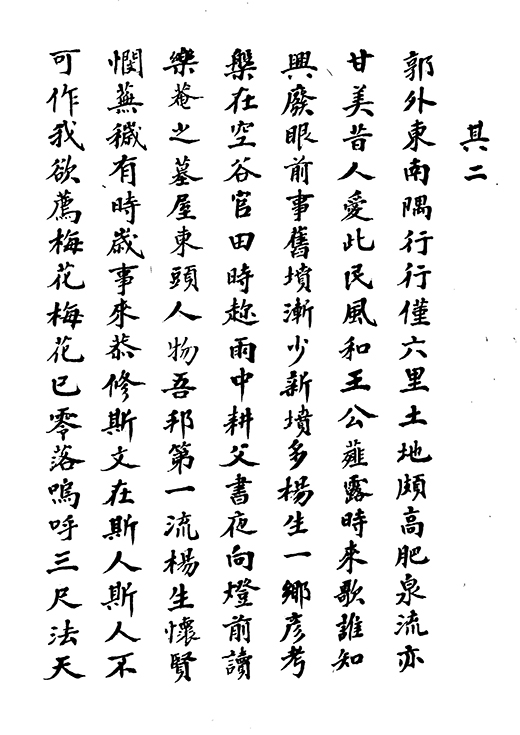 其二
郭外東南隅行行僅六里土地頗高肥泉流亦
甘美昔人愛此民風和王公薤露時來歌誰知
興廢眼前事舊墳漸少新墳多楊生一鄉彥考
槃在空谷官田時趂雨中耕父書夜向燈前讀
樂菴之墓屋東頭人物吾邦第一流楊生懷賢
憫蕪穢有時歲事來恭修斯文在斯人斯人不
可作我欲薦梅花梅花已零落嗚呼三尺法天